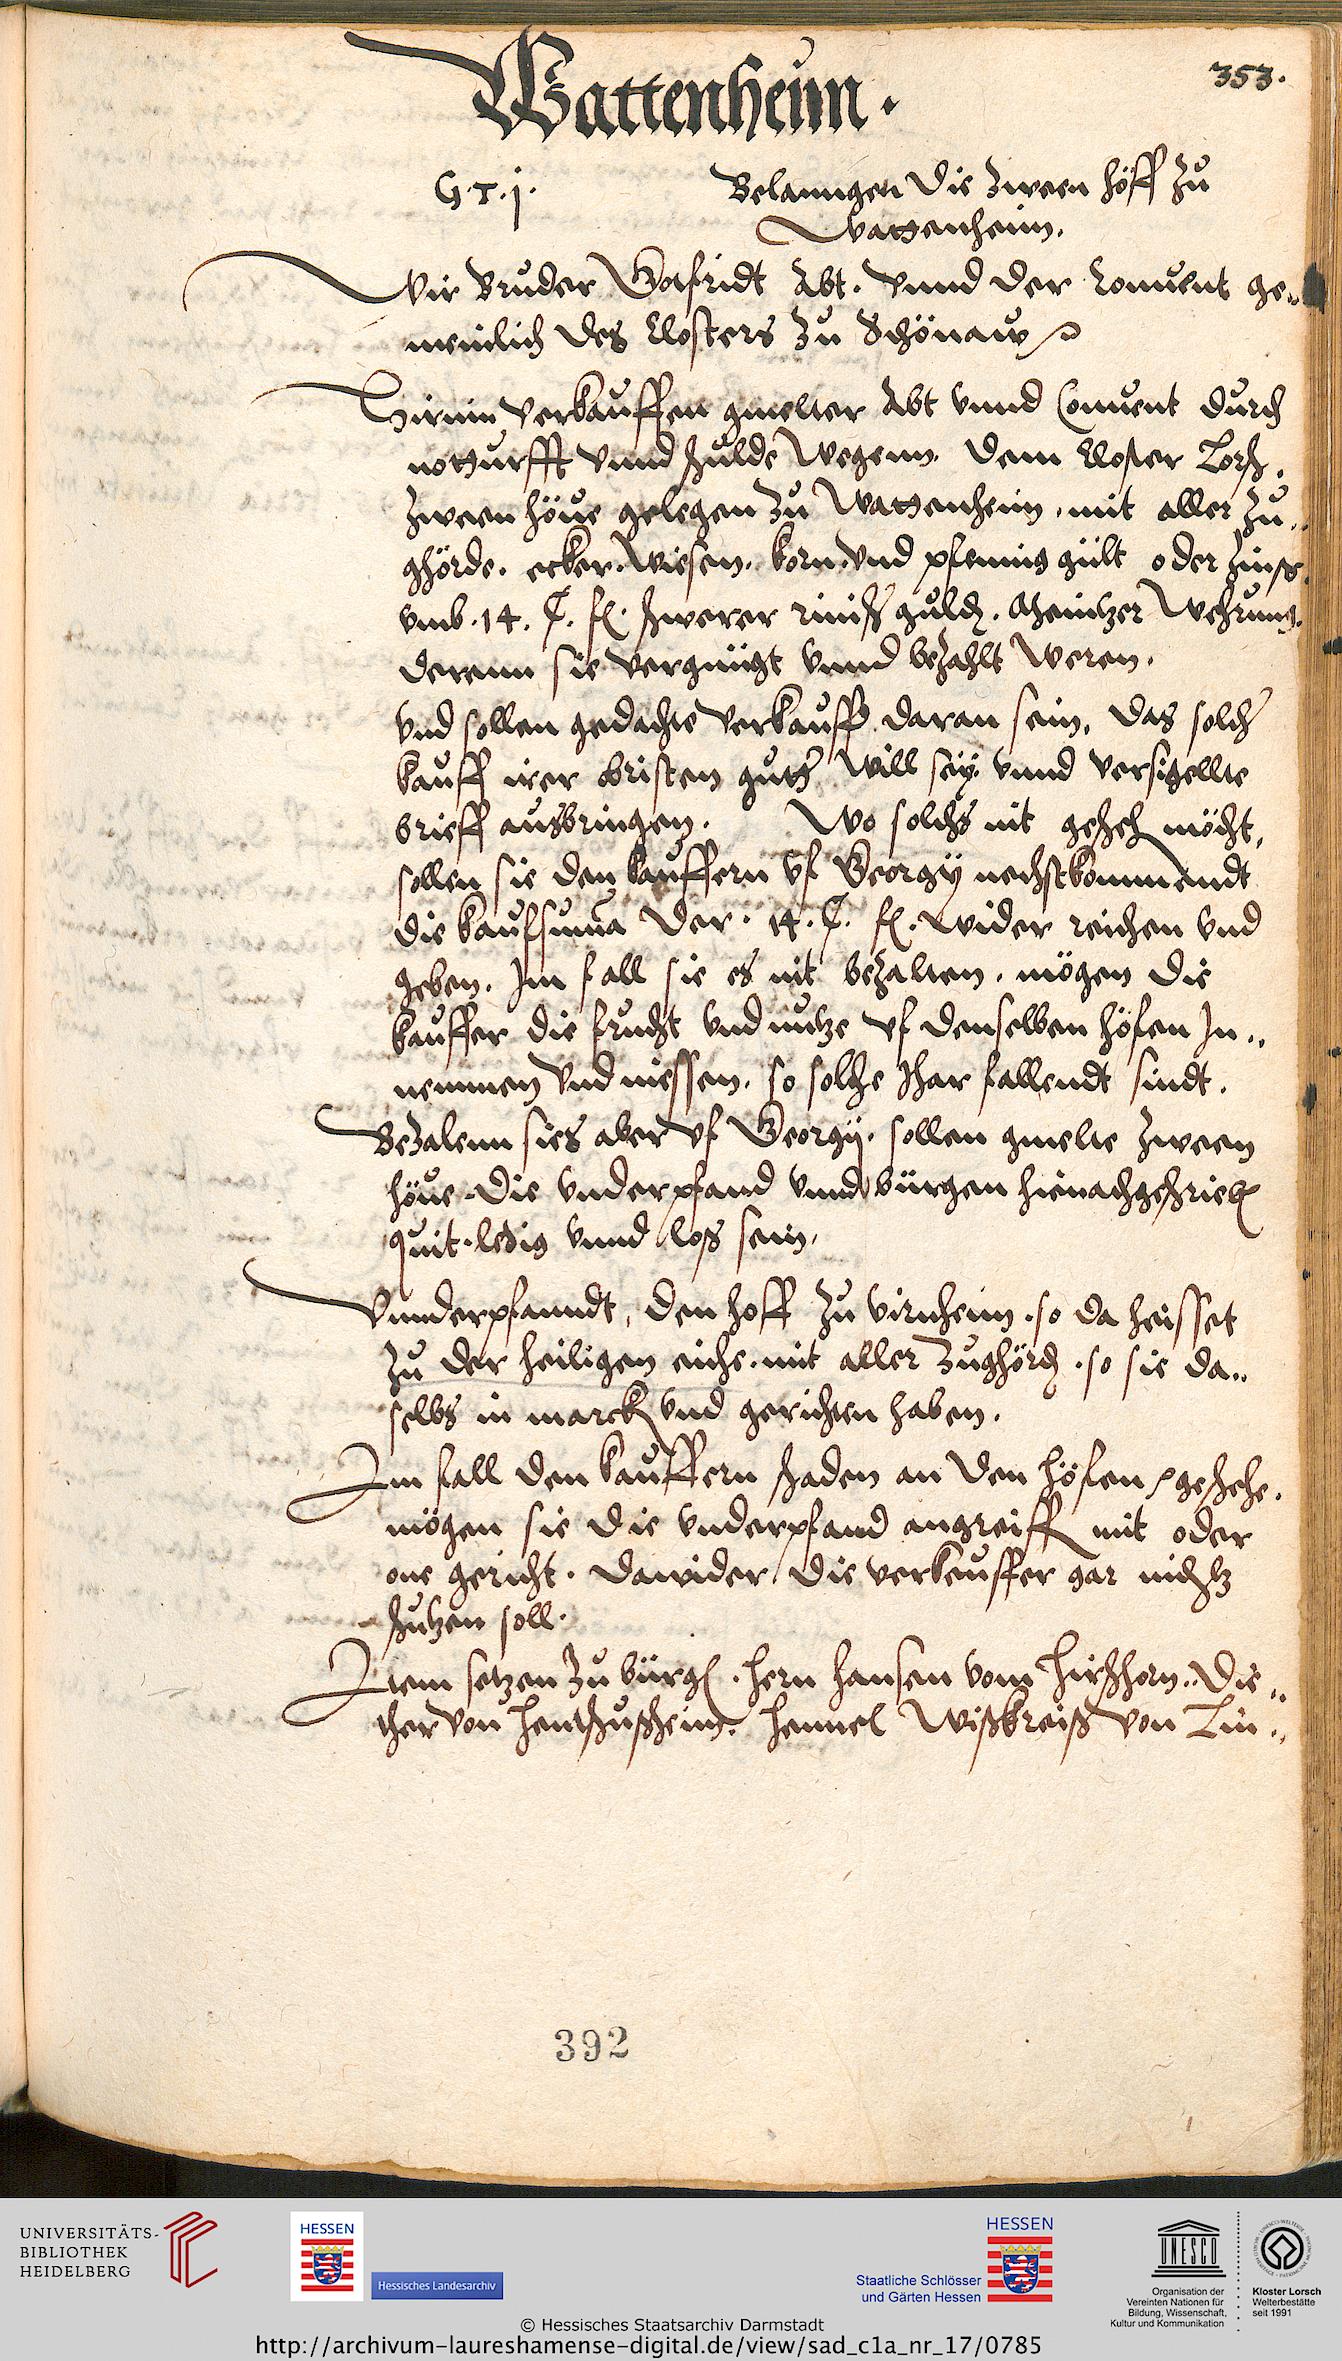 Wattenheim.
353.
G.T.j.
Belanngen Die zween höff zu
Wattenheim.
Wir Bruder Gotfridt Abt. vnnd der Conuent ge„
meinlich des Closters zu Schönaw
Hirnin verkauffen gmelter Abt vnnd Conuent durch
notturfft vnnd schulde Wegenn. Dem Closter Lorsch.
zween höue gelegen zu Wattenheim. mit aller zu„
ghörde. ecker. Wiesen. korn. vnd pfennig gült oder zinß.
vmb. 14. C. fl. schwerer rinisch guld. Meintzer Wehrung.
derenn sie vergnügt vnnd bezahlt Weren.
vnd sollen gedachte verkauffer daran sein, das solcher
kauff irer obristen guther Will sey. vnnd versigellte
brieff ausbringen. Wo solchs nit gescheh möcht,
sollen sie den kauffern vf Georgij nechstkommendt
die kaufsuma der. 14. C. fl. wider reichen vnd
geben. Im fall sie es nit bezalten. mögen die
kauffer die frucht vnd nutze vf denselben höfen In„
nemmen vnd niessen. so solche Jhar fallendt sindt.
Bezalenn sies aber vf Georgij. sollen gmelte zween
höue. Die vnderpfand vnnd bürgen hienachgeschrieben
quit. ledig vnnd loß sein.
Vnnderpfanndt, den hoff zu virnheim. so da heisset
zu der heiligen eiche. mit aller zughörd. so sie da„
selbs in marck vnd gerichten haben.
Im fall den kauffern schaden an den höfen geschehe.
mögen sie die vnderpfand angreiffen mit oder
one gericht. dawider die verkeuffer gar nichtz
schutzen soll.
Item setzen zu bürgen. hern hansen vom Hirschhorn. Die„
ther von Hentschußheim. Hennel Wißkreiß von Lin„
392
UNIVERSITÄTS-
BIBLIOTHEK
HEIDELBERG
HESSEN
Hessisches Landesarchiv
HESSEN
Staatliche Schlösser
und Gärten Hessen
UNESCO
Organisation der
Vereinten Nationen für
Bildung, Wissenschaft,
Kultur und Kommunikation
Kloster Lorsch
Welterbestätte
seit 1991
© Hessisches Staatsarchiv Darmstadt
http://archivum-laureshamense-digital.de/view/sad_c1a_nr_17/0785